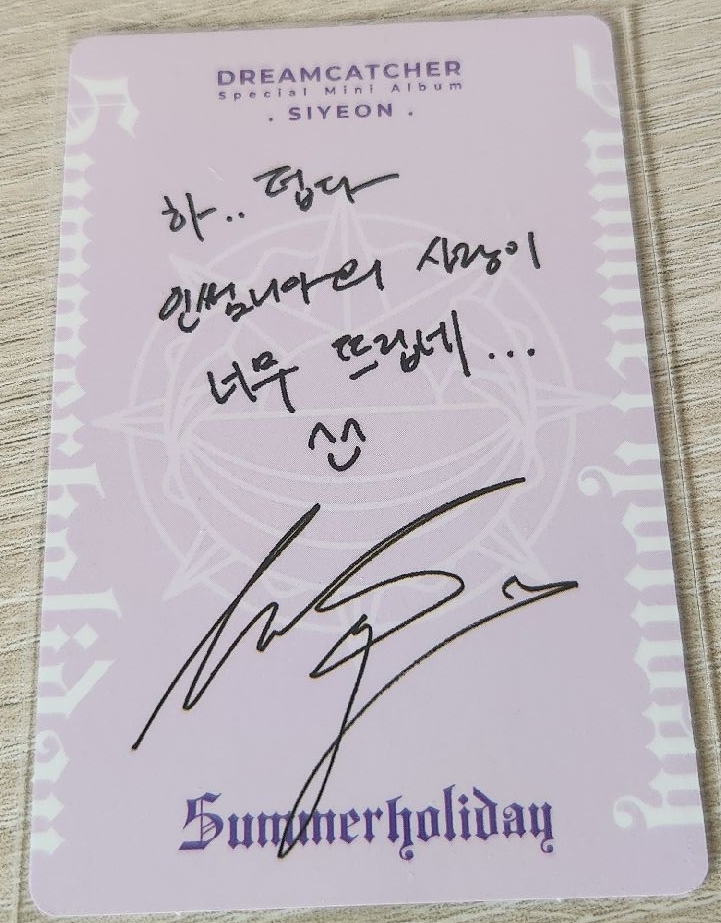 DREAMCATCHER
Special Mini Album
. SIYEON .
하.. 덥다
인썸니아의 사랑이
너무 뜨겁네...
^^
Summerholiday
Summerholiday
Summerholiday